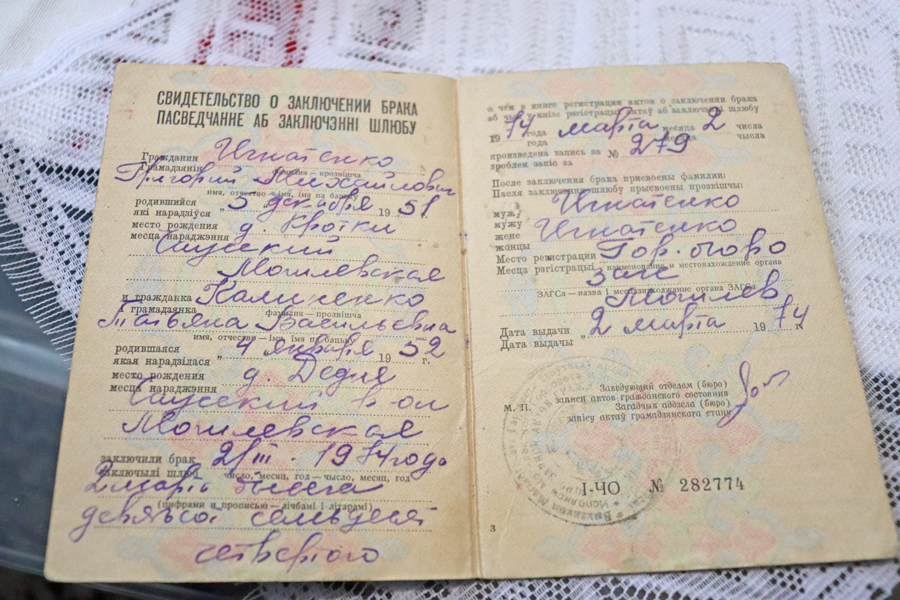 СВИДЕТЕЛЬСТВО О ЗАКЛЮЧЕНИИ БРАКА
ПАСВЕДЧАННЕ АБ ЗАКЛЮЧЭННІ ШЛЮБУ
Гражданин Игнатенко
Грамадзянін фамилия — прозвішча
Григорий Михайлович
имя, отчество — імя, імя па бацьку
родившийся „5 декабря 1951
які нарадзіўся
место рождения д. Кротки
месца нараджэння
Могилевская
и гражданка Калиненко
грамадзянка фамилия — прозвішча
Татьяна Васильевна
имя, отчество — імя, імя па бацьку
родившаяся „4 января 1952
якая нарадзілася г.
место рождения д.
месца нараджэння
р-он
Могилевская
заключили брак 2/III - 1974 года
заключылі шлюб число, месяц, год — чысло, месяц, год
2 марта тысяча
(цифрами и прописью — лічбамі і літарамі)
девятьсот семьдесят
четвертого
о чем в книге регистрации актов о заключении брака
аб чым у кнізе рэгістрацыі актаў аб заключэнні шлюбу
1974 года марта месяца 2 числа
года чысла
произведена запись за № 279
зроблен запіс за
После заключения брака присвоены фамилии:
Пасля заключэння шлюбу прысвоены прозвішчы:
мужу Игнатенко
мужу
жене Игнатенко
жонцы
Место регистрации Гор. бюро
Месца рэгістрацыі наименование и местонахождение органа
загс
ЗАГСа — назва і месцазнаходжанне органа ЗАГСа
Могилев
Дата выдачи „2 марта 1974 г.
Дата выдачы
Заведующий отделом (бюро)
записи актов гражданского состояния
М. П. Загадчык аддзела (бюро)
запісу актаў грамадзянскага стану
I-ЧО № 282774
3